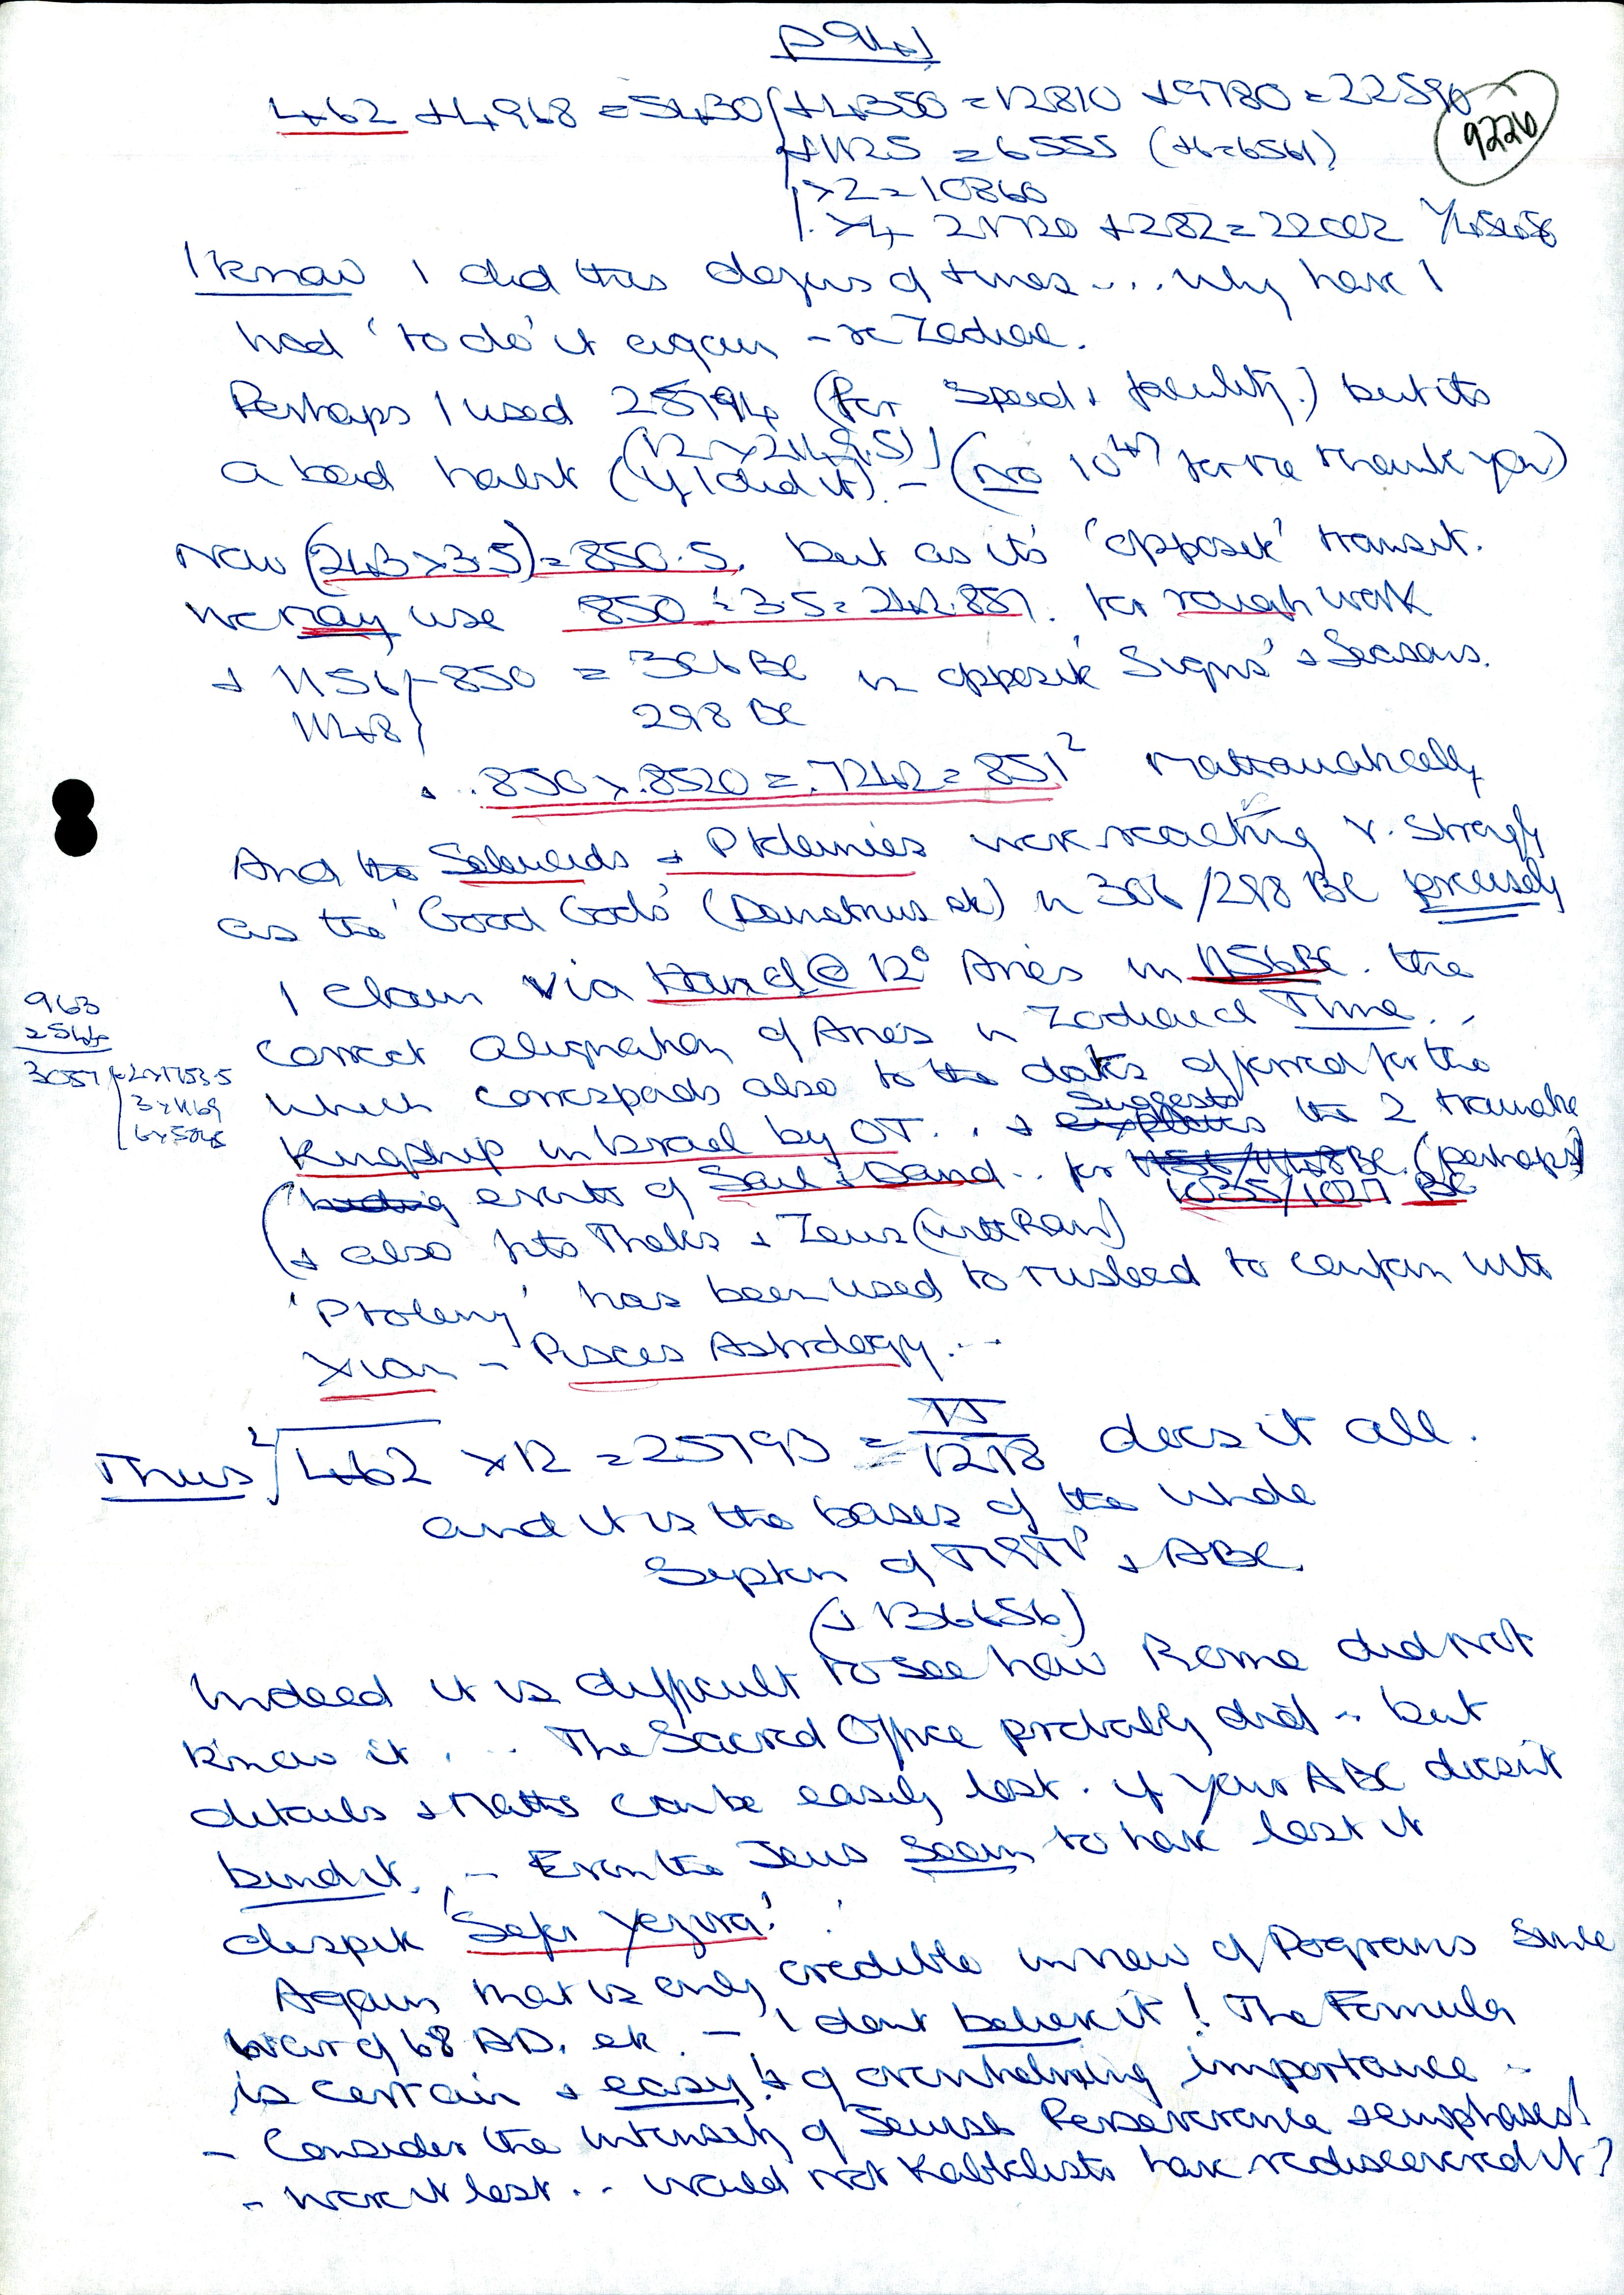 p941
462 + 4968 = 5430 + 4350 = 12810 + 9780 = 22590
9226
+ 1125 = 6555 (+6=6561)
x2 = 10860
x4 21720 + 282 = 22002
I know I did this dozens of times .... Why have I
had 'to do' it again - re Zodiac.
Perhaps I used 25794 (for speed + facility.) but its
(12 x 2149.5)
a bad habit (if I did it). - (no 10 47 for me thank you)
Now (243 x 3.5) = 850.5, but as its 'opposite' transit.
We may use 850 ÷ 3.5 = 242.857. for rough work
+ 1156 - 850 = 306 BC in opposite 'Signs' + Seasons.
1148 298 BC
... 850 x .8520 = .7242 = 851² Mathematically
And the Seleucids + Ptolemies were reacting v. strongly
as the 'Good Gods' (Demetrius etc) in 306/298 BC precisely
I claim via Hand @ 12° Aries in 1156 BC. the
963
2544
3057
2 x 1753.5
3 x 1169
6 x 5045
correct alignation of Aries in Zodiacal Time...
which corresponds also to the dates offered for the
Suggests
Kingship in Israel by OT... + the 2 traumatic
events of Saul + David .. for 1156/1148 BC. (perhaps)
1035/1027 BC
(+ also fits Thales + Zeus (with Ram)
'Ptolemy' has been used to mislead to conform with
Xian - Pisces Astrology...
Thus 2√462 x 12 = 25793 = 1218 does it all.
and it is the basis of the whole
System of + ABC
(+ 136656)
Indeed it is difficult to see how Rome did not
know it ... The Sacred Office probably did - but
details + Maths can be easily lost. if your ABC doesnt
bind it. - Even the Jews seem to have lost it
despite 'Sefer Yezira!'
Again that is only credible in view of Pograms since
War of 68 AD. etc. - I dont believe it! The Formula
is certain + easy! + of overwhelming importance -
- Consider the intensity of Jewish Perseverance + emphases!
- were it lost... would not Kabbalists have rediscovered it?